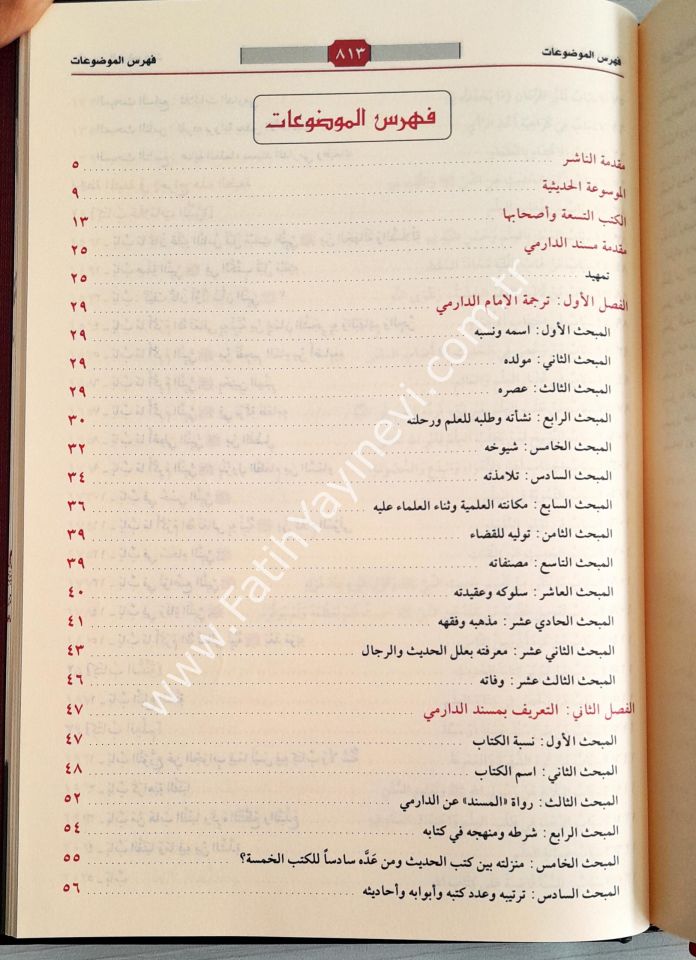 فهرس الموضوعات ٨١٣ فهرس الموضوعات
فهرس الموضوعات
مقدمة الناشر ٥
الموسوعة الحديثية ٩
الكتب التسعة وأصحابها ١٣
مقدمة مسند الدارمي ٢٥
تمهيد ٢٥
الفصل الأول: ترجمة الإمام الدارمي ٢٩
المبحث الأول: اسمه ونسبه ٢٩
المبحث الثاني: مولده ٢٩
المبحث الثالث: عصره ٢٩
المبحث الرابع: نشأته وطلبه للعلم ورحلته ٣٠
المبحث الخامس: شيوخه ٣٢
المبحث السادس: تلامذته ٣٤
المبحث السابع: مكانته العلمية وثناء العلماء عليه ٣٦
المبحث الثامن: توليه للقضاء ٣٩
المبحث التاسع: مصنفاته ٣٩
المبحث العاشر: سلوكه وعقيدته ٤٠
المبحث الحادي عشر: مذهبه وفقهه ٤١
المبحث الثاني عشر: معرفته بعلل الحديث والرجال ٤٣
المبحث الثالث عشر: وفاته ٤٦
الفصل الثاني: التعريف بمسند الدارمي ٤٧
المبحث الأول: نسبة الكتاب ٤٧
المبحث الثاني: اسم الكتاب ٤٨
المبحث الثالث: رواة «المسند» عن الدارمي ٥٢
المبحث الرابع: شرطه ومنهجه في كتابه ٥٤
المبحث الخامس: منزلته بين كتب الحديث ومن عَدَّه سادساً للكتب الخمسة؟ ٥٥
المبحث السادس: ترتيبه وعدد كتبه وأبوابه وأحاديثه ٥٦
www.FatihYayinevi.com.tr